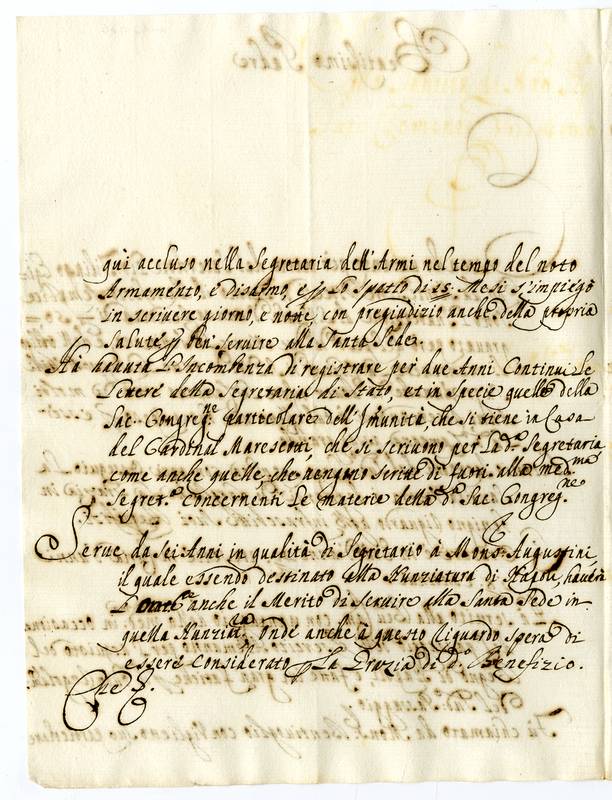 qui accluso nella Segretaria dell'Armi nel tempo del noto
Armamento, e disarmo, e p lo spatio di 15. Mesi s'impiegò
in scrivere giorno, e notte, con pregiudizio anche della propria
salute p ben servire alla Santa Sede.
Hà havuta l'Incombenza di registrare per due Anni Continui le
Lettere della Segretaria di Stato, et in specie quelle della
Sac. Congreg.ne particolare dell'Imunità, che si tiene in Casa
del Cardinal Marescotti, che si scrivono per la d.a Segretaria
come anche quelle, che vengono scritte di fuori alla med.ma
Segret.a concernenti le materie della d.a Sac. Congreg.ne
Serve da sei Anni in qualità di Segretario à Mons.r Augustini
il quale essendo destinato alla Nunziatura di Napoli, haverà
l' anche il Merito di servire alla Santa Sede in
quella Nunzia.ra Onde anche à questo riguardo spera di
essere considerato p la Grazia di d.o Benefizio.
Che &.